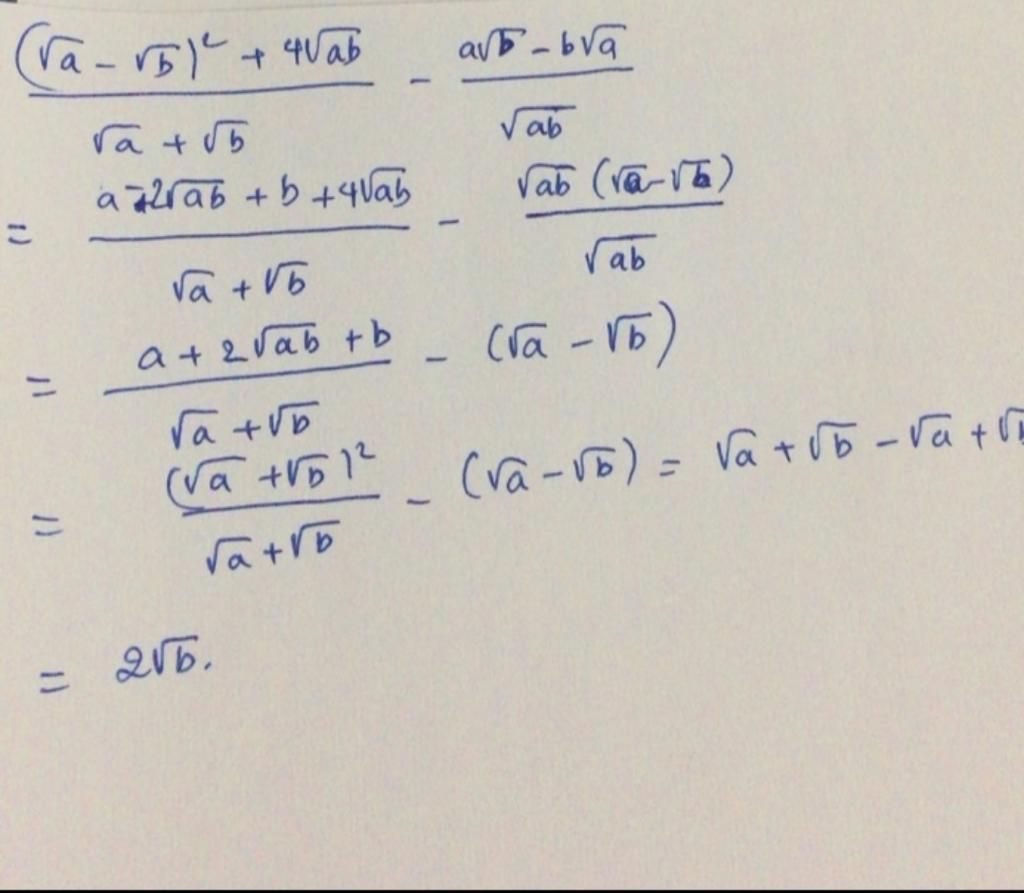 (√a - √b)² + 4√ab / √a + √b - a√b - b√a / √ab
= a - 2√ab + b + 4√ab / √a + √b - √ab (√a - √b) / √ab
= a + 2√ab + b / √a + √b - (√a - √b)
= (√a + √b)² / √a + √b - (√a - √b) = √a + √b - √a + √b
= 2√b.